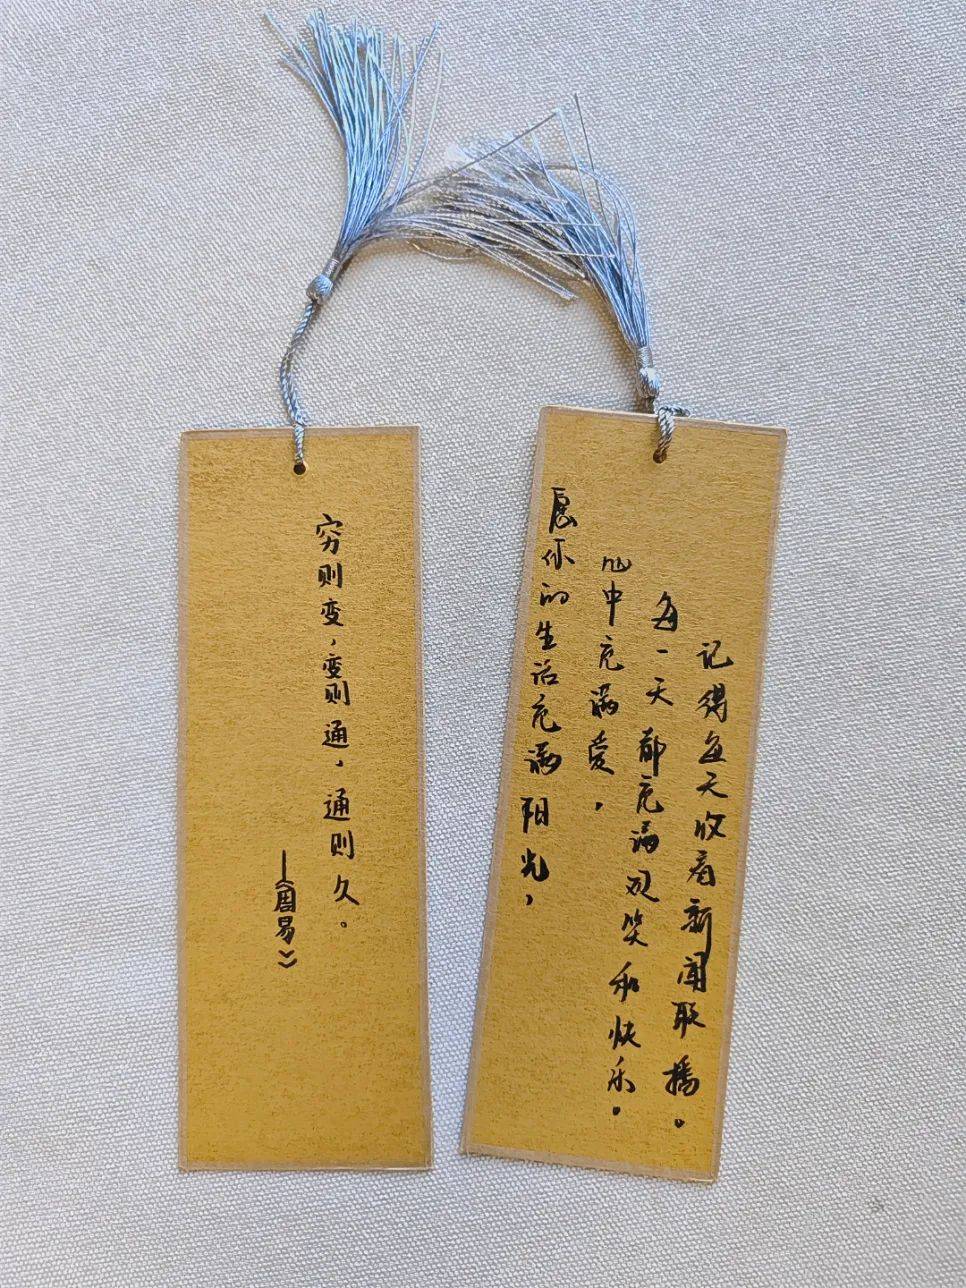 穷则变，变则通，通则久。
——《周易》
愿你的生活充满阳光，
心中充满爱，
每一天都充满欢笑和快乐。
记得每天收看新闻联播。